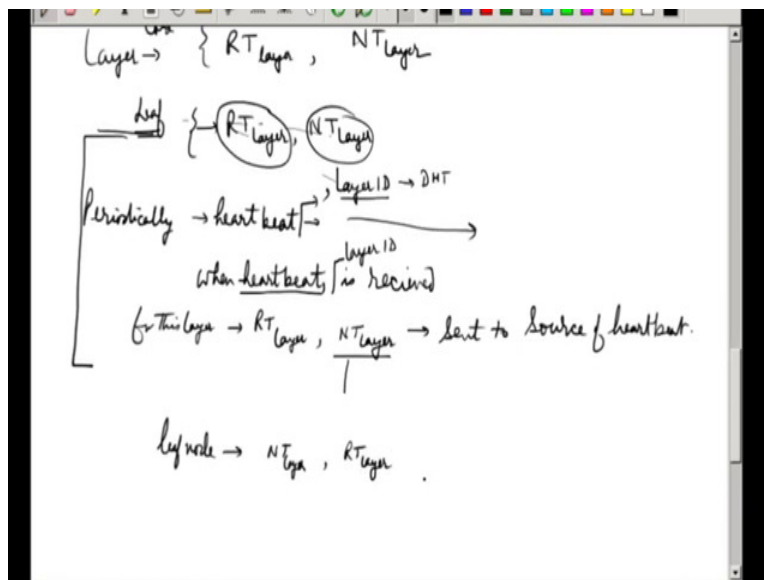 Layer → { RT Layer , NT Layer
Leaf { → RT Layer, NT Layer
, Layer ID → DHT
Periodically → heartbeat →
Layer ID
when heartbeat, is recieved
for this layer → RT Layer , NT Layer → Sent to Source of heartbeat.
leaf node → NT Layer , RT Layer .